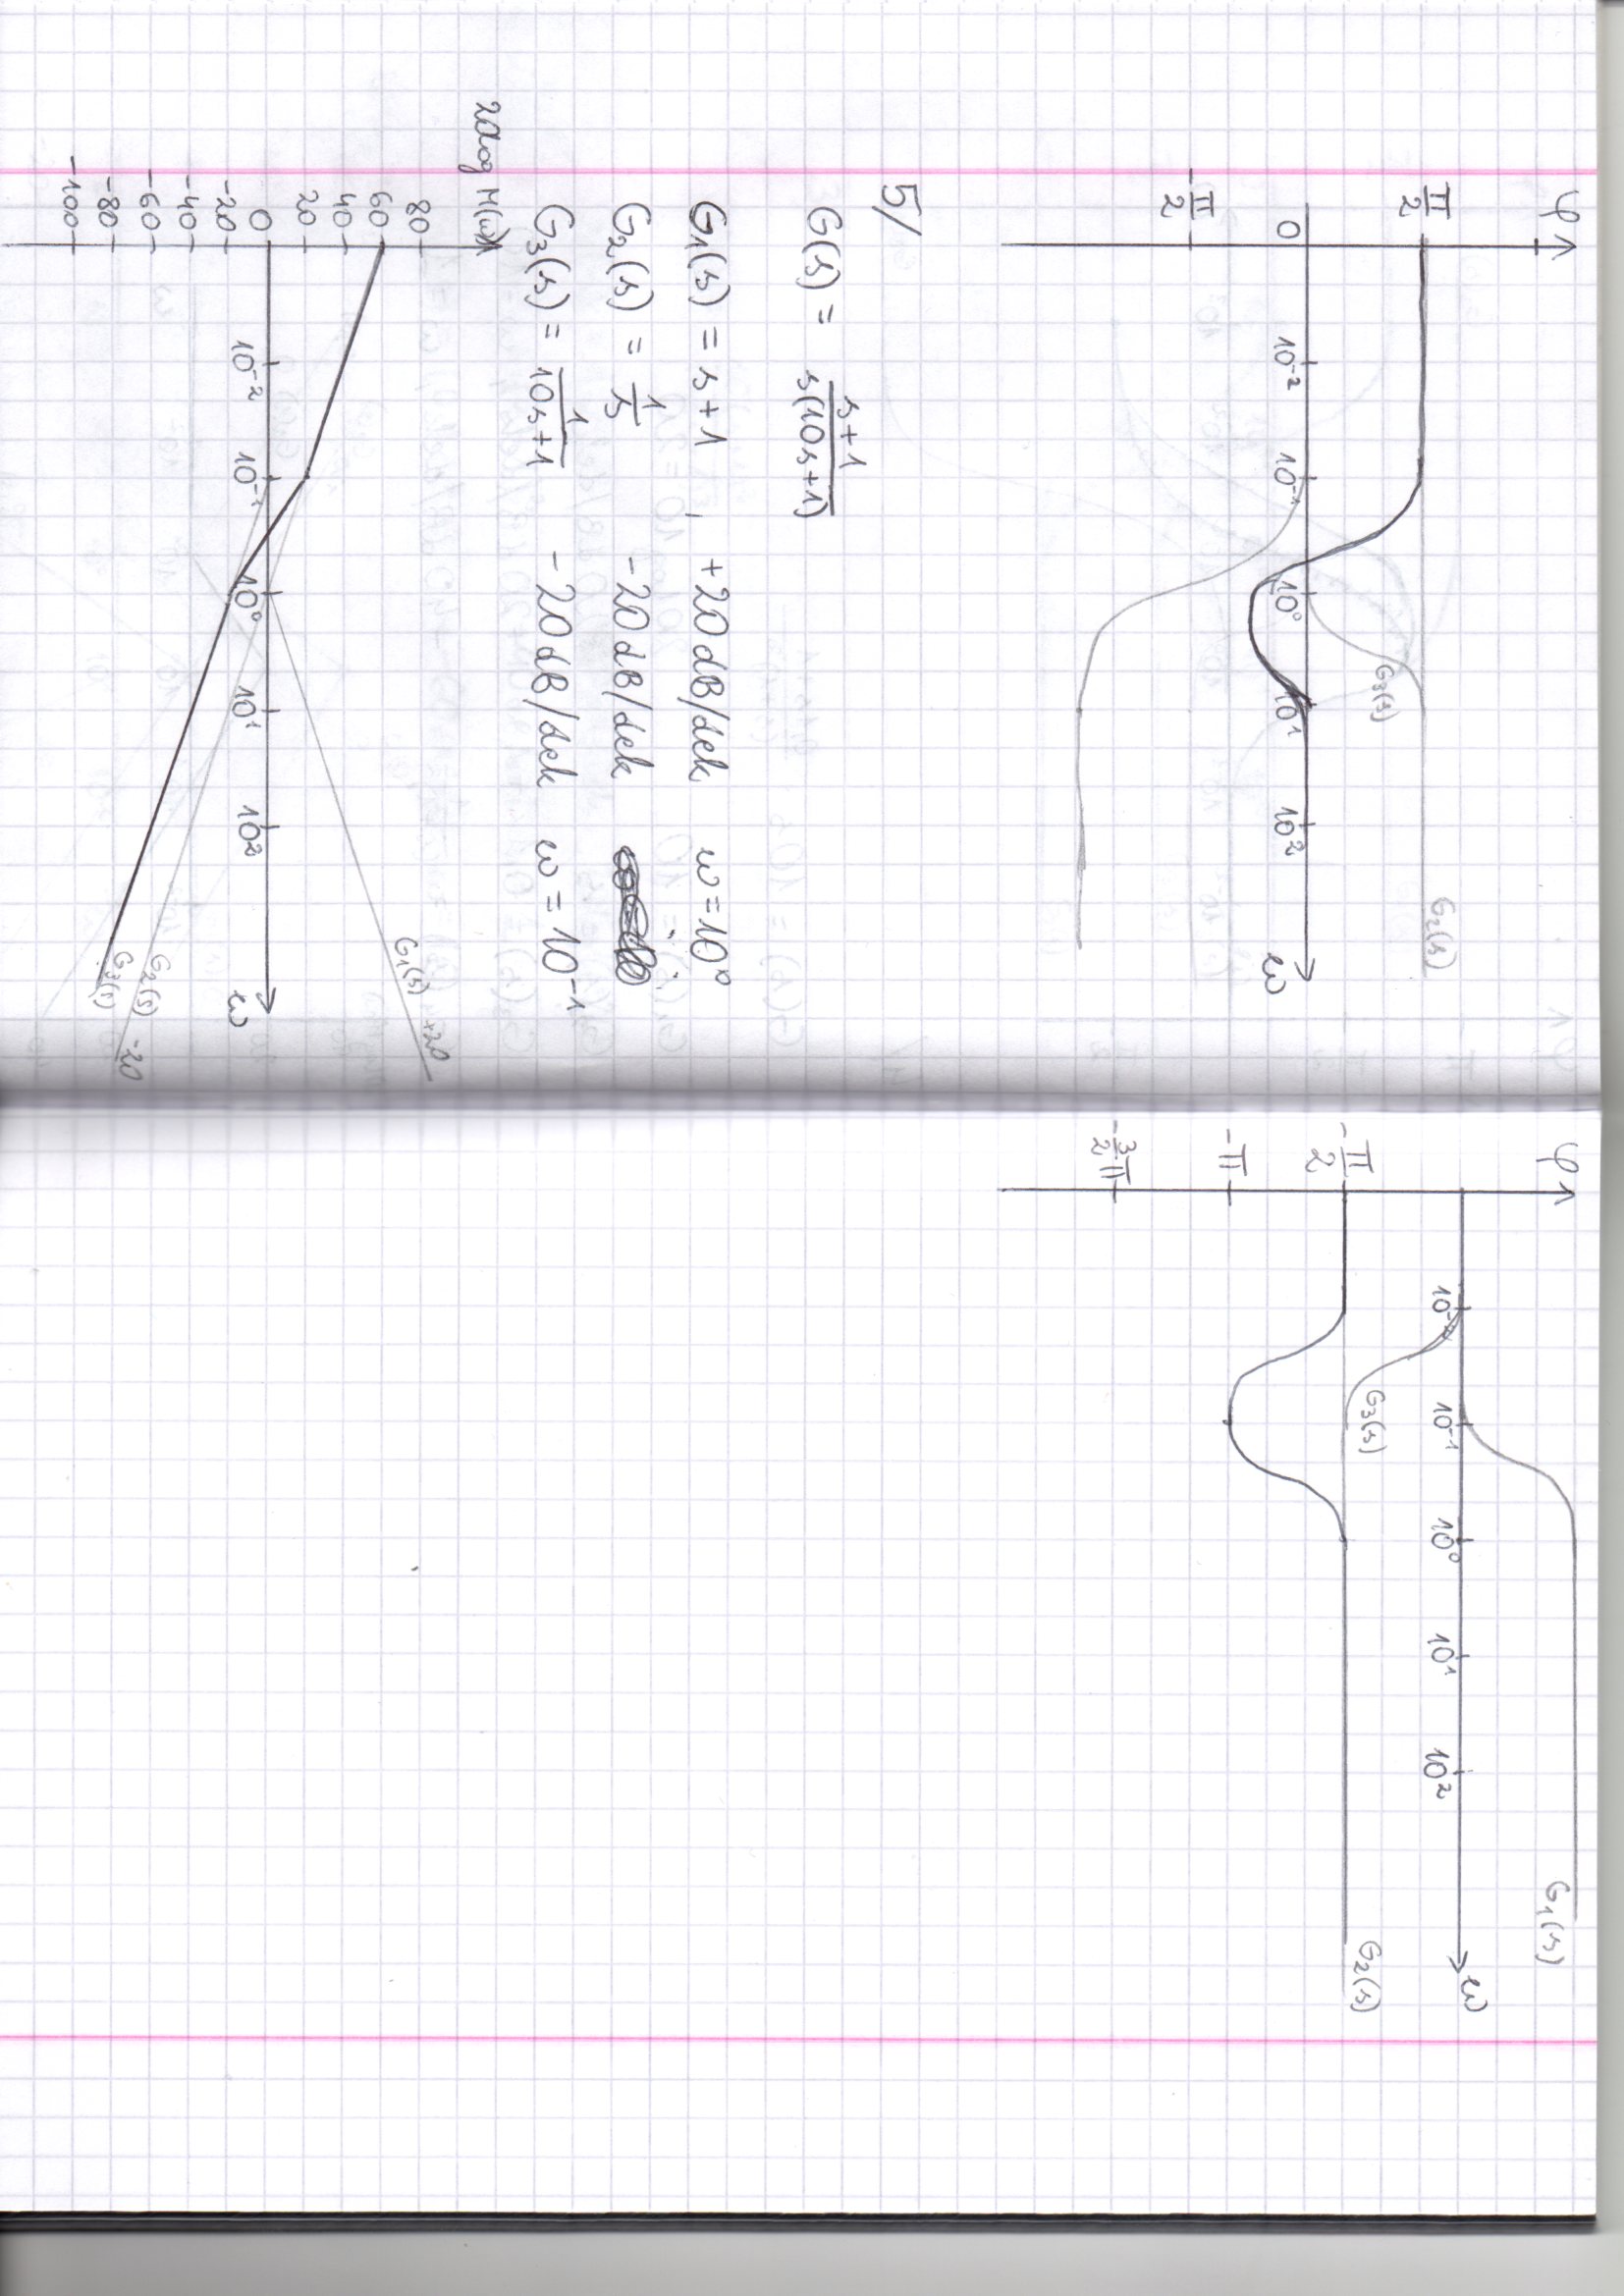 φ
π/2
G₂(s)
G₃(s)
0 10⁻² 10⁻¹ 10⁰ 10¹ 10² ω
-π/2
5/
G(s) = (s+1)/(s(10s+1))
G₁(s) = s+1 , +20 dB/dek ω=10⁰
G₂(s) = 1/s -20 dB/dek
G₃(s) = 1/(10s+1) -20 dB/dek ω = 10⁻¹
20log M(ω)
80
60
40
20
0
-20
-40
-60
-80
-100
10⁻² 10⁻¹ 10⁰ 10¹ 10² ω
G₁(s) +20
G₂(s) -20
G₃(s)
φ
G₁(s)
ω
10⁻¹ 10⁰ 10¹ 10²
G₃(s)
G₂(s)
-π/2
-π
-3/2π